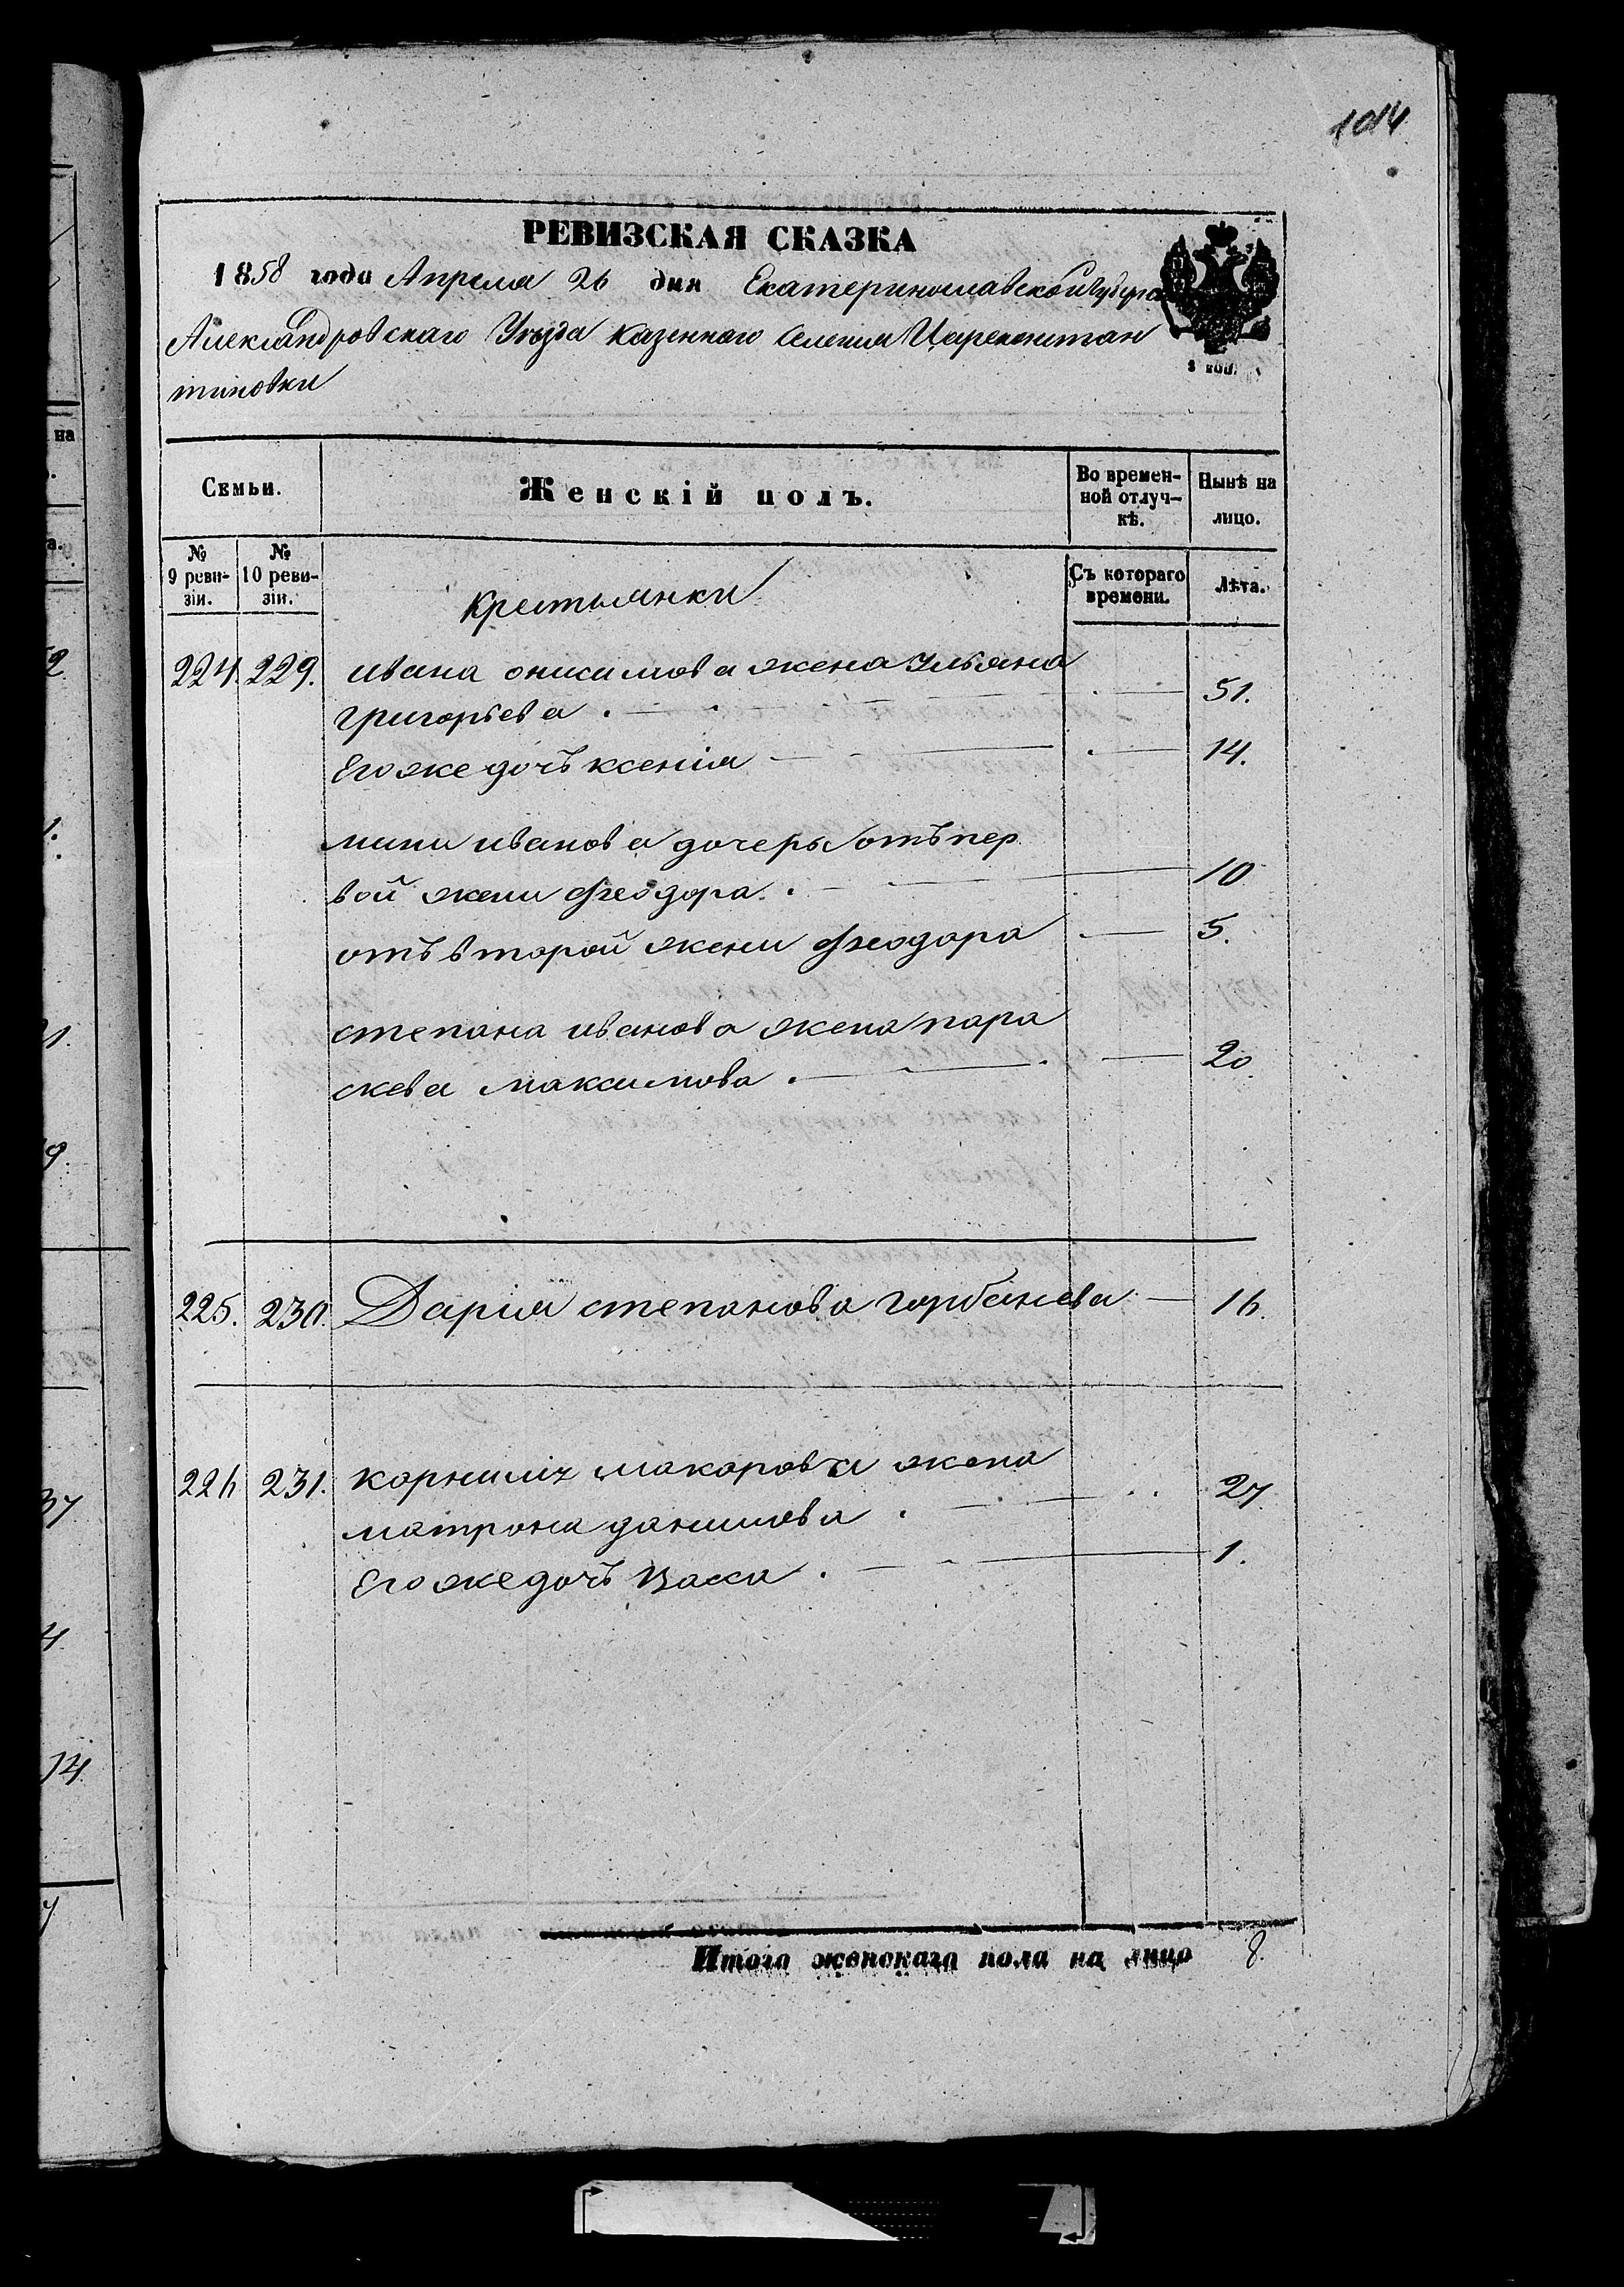 1014
РЕВИЗСКАЯ СКАЗКА
1858 года Апреля 26 дня Екатеринославской Губер
Александровскаго Уезда казеннаго Селения Цареконстан
тиновки
Семьи. Женскій полъ. Во времен-ной отлуч-кѣ. Нынѣ на лицо.
№ 9 реви-зіи. № 10 реви-зіи. Съ котораго времени. Лѣта.
крестьянки
224. 229. ивана онисимова жена Ульяна
григорьева 51.
Его же дочь ксенія 14.
мини иванова дочеры отъ пер
вой жени Феодора 10
отъ второй жени Феодора 5.
степана иванова жена пара
скева максимова 20.
225. 230. Дарія степанова горбанева 16.
226 231. корнилія макарова жена
матрона данилова 27
Его же дочь Васса 1.
Итого женскаго пола на лицо 8.